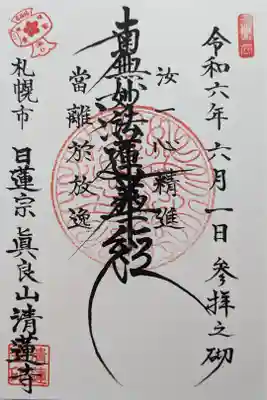 令和六年六月一日 参拝之砌
汝一心精進
南無妙法蓮華経
當離於放逸
札幌市 日蓮宗 眞良山清蓮寺